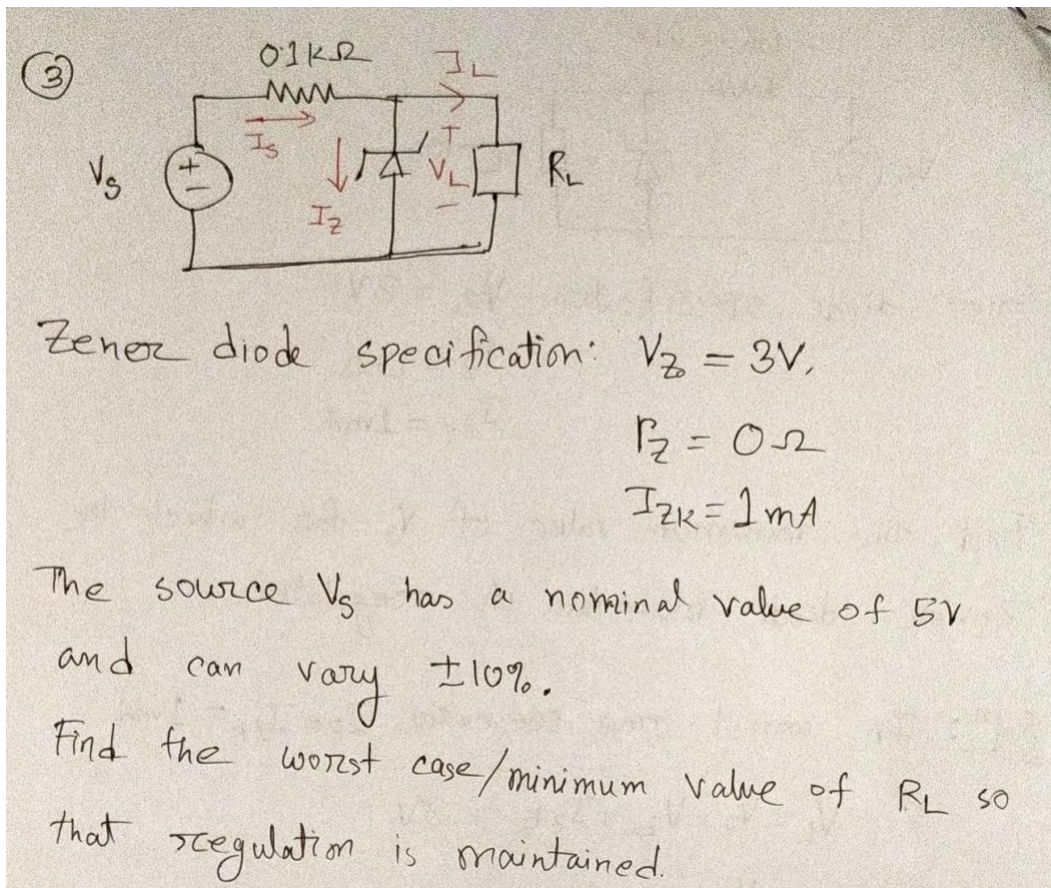 3
0.1kΩ
I_L
I_S
V_S
+
-
I_Z
+
V_L
-
R_L
Zener diode specification: V_Z0 = 3V,
r_Z = 0Ω
I_ZK = 1mA
The source V_S has a nominal value of 5V
and can vary ±10%.
Find the worst case/minimum value of R_L so
that regulation is maintained.